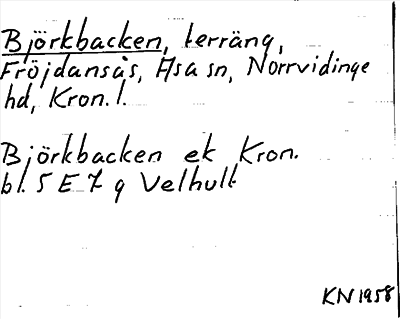 Björkbacken, terräng,
Fröjdansås, Asa sn, Norrvidinge
hd, Kron. l.
Björkbacken ek Kron.
bl. 5 E 7 g Velhult
KN 1958